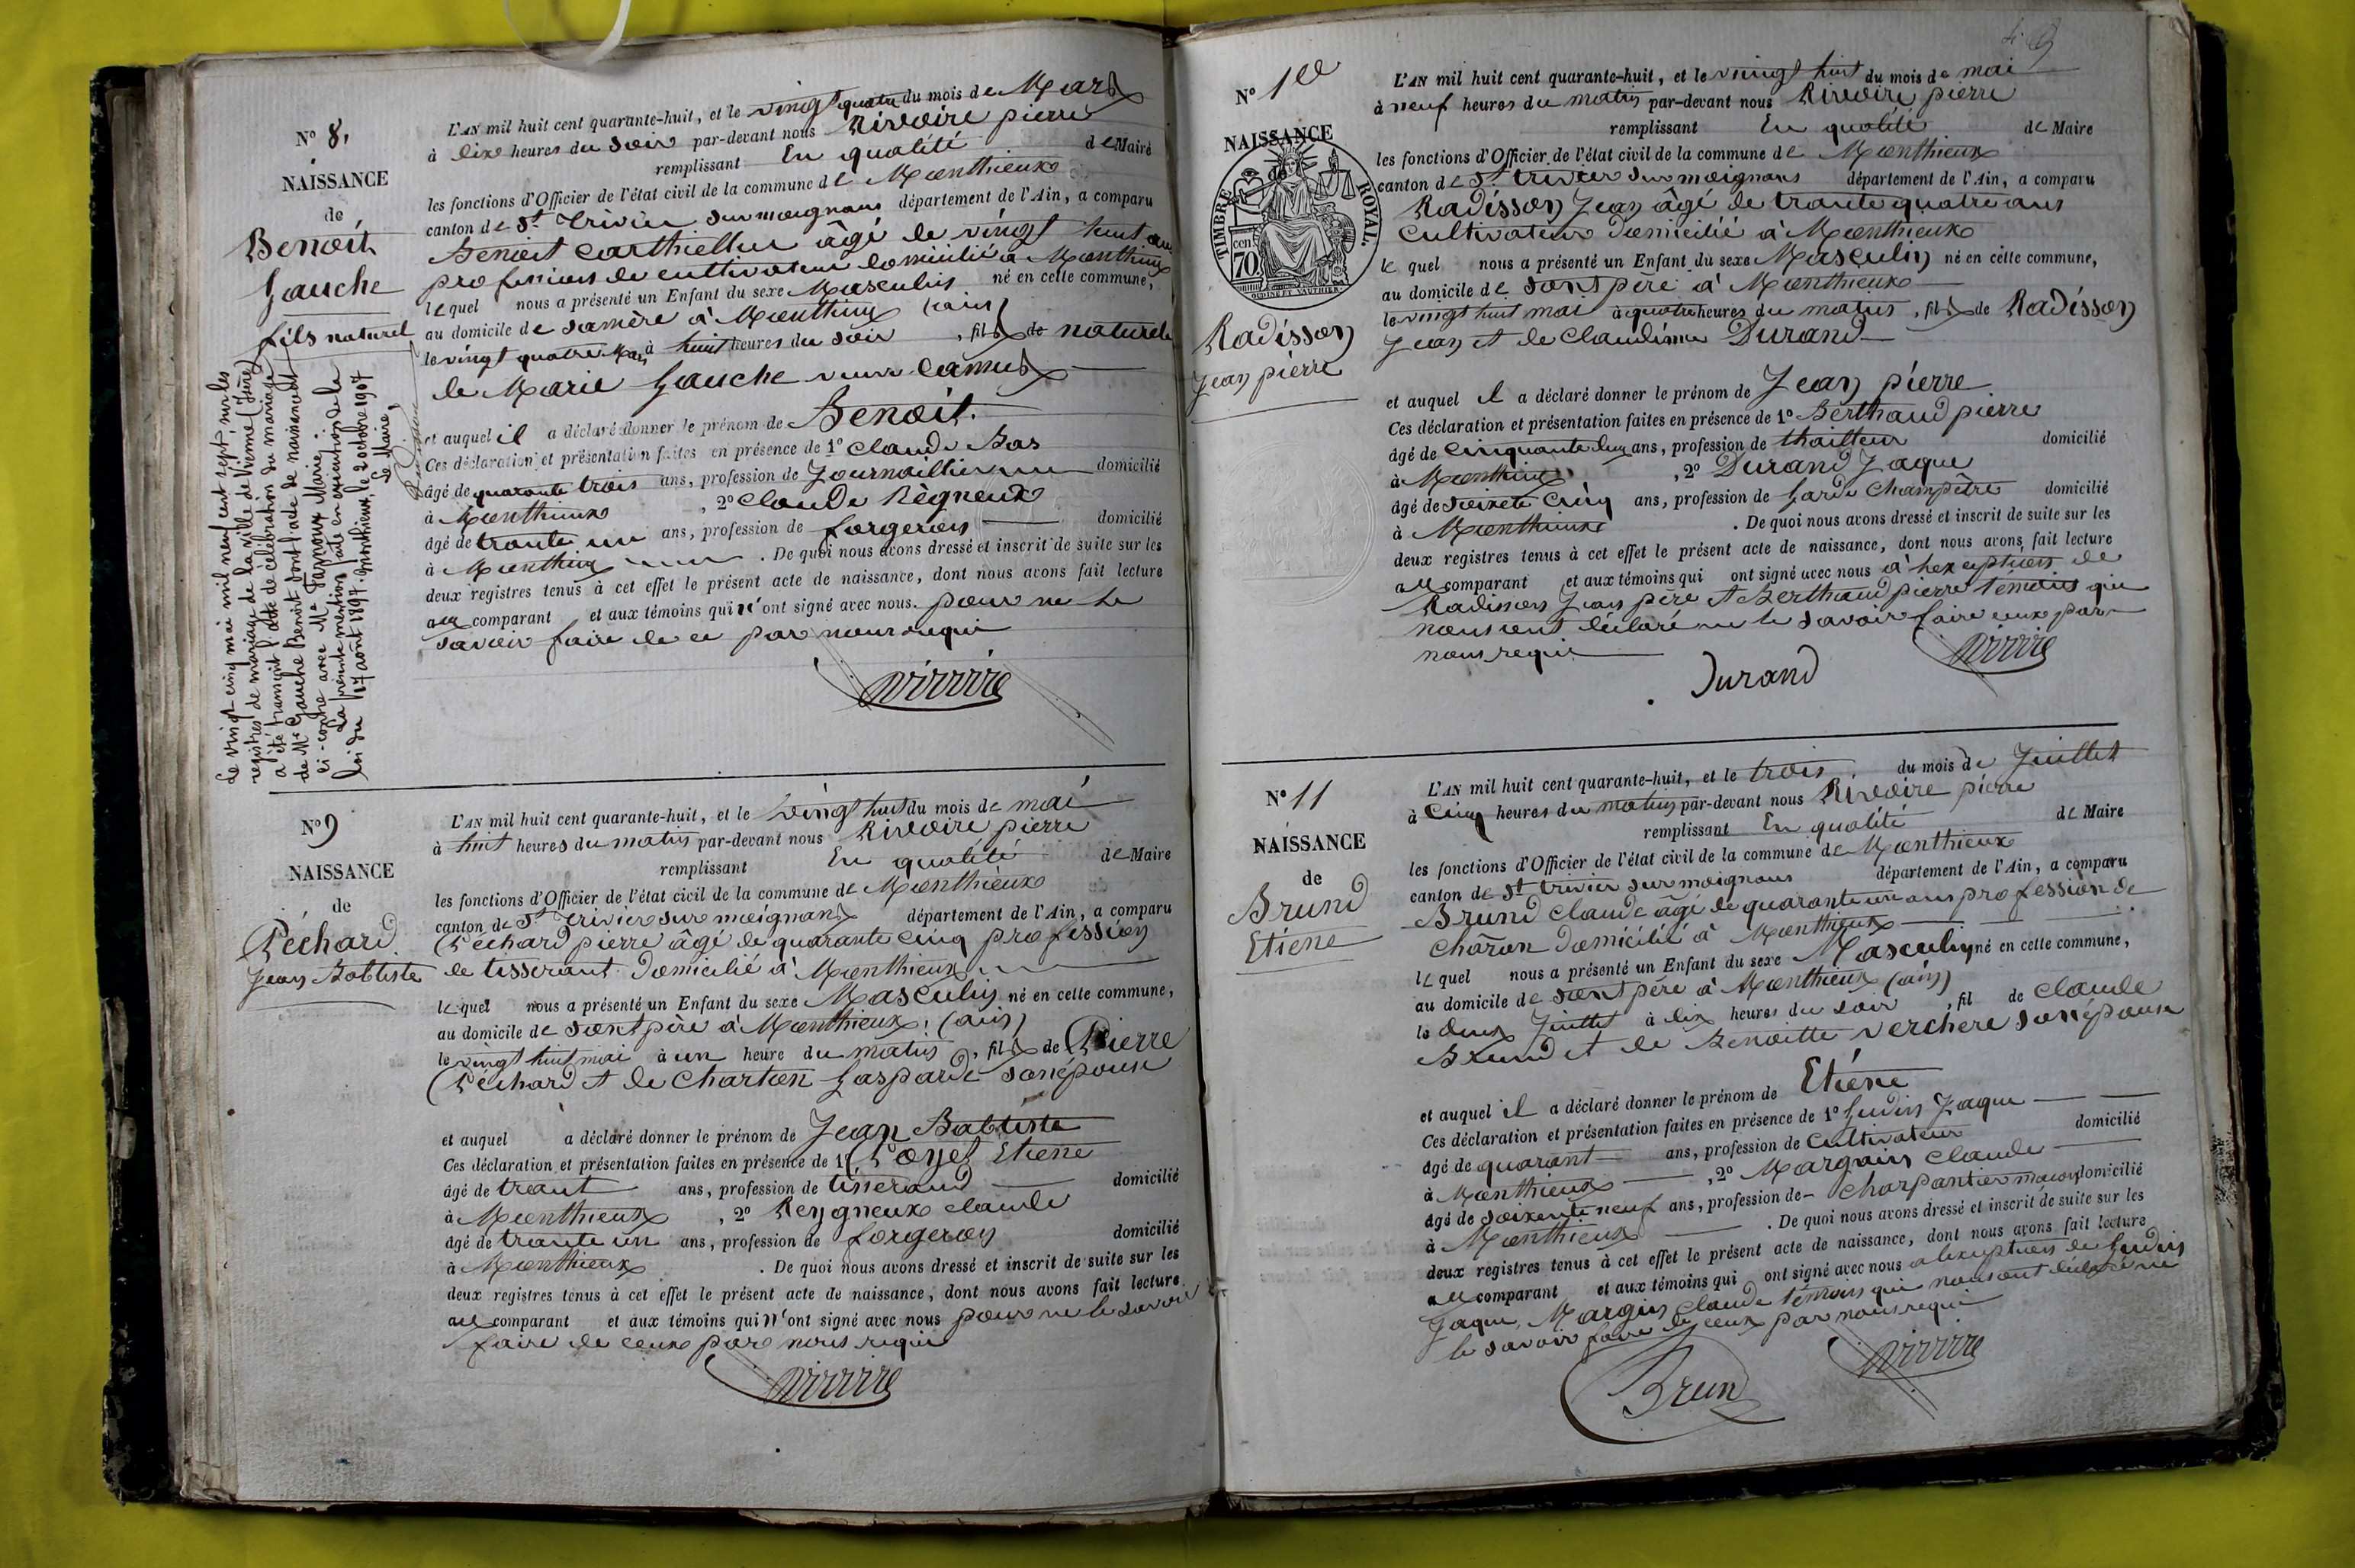 N° 8.
NAISSANCE
de
Benoit
Gauche
fils naturel
Le vingt-cinq mai mil neuf cent sept, sur les
registres de mariage de la ville de Vienne (Isère)
a été transcrit l'acte de célébration du mariage
de Mr Gauche Benoit dont l'acte de naissance est
ci-contre avec Me Farnoux Marie.
La présente mention faite en exécution de la
loi du 17 août 1897. Monthieux, le 20 octobre 1907
Le Maire,
L'AN mil huit cent quarante-huit, et le vingt quatre du mois de Mars
à dix heures du soir par-devant nous Rivoire pierre
remplissant En qualité de Maire
les fonctions d'Officier de l'état civil de la commune de Monthieux
canton de St Trivier sur moignans département de l'Ain, a comparu
Benoit carthiellier âgé de vingt huit ans
profession de cultivateur domicilié a Monthieux
lequel nous a présenté un Enfant du sexe Masculin né en cette commune,
au domicile de samère à Monthieux (ain)
le vingt quatre Mars à huit heures du soir , fils de naturel
de Marie Gauche veuve camus
et auquel il a déclaré donner le prénom de Benoit.
Ces déclaration et présentation faites en présence de 1° claude Bas
âgé de quarante trois ans, profession de Journaillier domicilié
à Monthieux , 2° claude Règneux
âgé de trante un ans, profession de forgeron domicilié
à Monthieux . De quoi nous avons dressé et inscrit de suite sur les
deux registres tenus à cet effet le présent acte de naissance, dont nous avons fait lecture
au comparant et aux témoins qui n'ont signé avec nous. pour ne le
savoir faire de ce par nous requi
Rivoire
N° 9
NAISSANCE
de
Péchard
Jean Babtiste
L'AN mil huit cent quarante-huit, et le vingt huit du mois de mai
à huit heures du matin par-devant nous Rivoire pierre
remplissant En qualité de Maire
les fonctions d'Officier de l'état civil de la commune de Monthieux
canton de St Trivier sur moignans département de l'Ain, a comparu
Péchard pierre âgé de quarante cinq profession
de tisserant domicilié à Monthieux
lequel nous a présenté un Enfant du sexe Masculin né en cette commune,
au domicile de sont père à Monthieux (ain)
le vingt huit mai à un heure du matin , fils de Pierre
Péchard et de Charton Gasparde son épouse
et auquel a déclaré donner le prénom de Jean Babtiste
Ces déclaration et présentation faites en présence de 1° Poyet Etiene
âgé de trant ans, profession de tisserand domicilié
à Monthieux , 2° Reygneux claude
âgé de trante un ans, profession de forgeron domicilié
à Monthieux . De quoi nous avons dressé et inscrit de suite sur les
deux registres tenus à cet effet le présent acte de naissance, dont nous avons fait lecture
au comparant et aux témoins qui n'ont signé avec nous pour ne le savoir
faire de ceux par nous requi
Rivoire
N° 10
NAISSANCE
TIMBRE ROYAL.
cen 70
Radisson
Jean pierre
L'AN mil huit cent quarante-huit, et le vingt huit du mois de mai
à neuf heures du matin par-devant nous Rivoire pierre
remplissant En qualité de Maire
les fonctions d'Officier de l'état civil de la commune de Monthieux
canton de St trivier sur moignans département de l'Ain, a comparu
Radisson Jean âgé de trante quatre ans
Cultivateur domicilié à Monthieux
le quel nous a présenté un Enfant du sexe Masculin né en cette commune,
au domicile de sont père à Monthieux
le vingt huit mai à quatre heures du matin , fils de Radisson
Jean et de claudine Durand
et auquel il a déclaré donner le prénom de Jean pierre
Ces déclaration et présentation faites en présence de 1° Berthaud pierre
âgé de cinquante deux ans, profession de thailleur domicilié
à Monthieux , 2° Durand Jaque
âgé de soixente cinq ans, profession de Garde Champètre domicilié
à Monthieux . De quoi nous avons dressé et inscrit de suite sur les
deux registres tenus à cet effet le présent acte de naissance, dont nous avons fait lecture
au comparant et aux témoins qui ont signé avec nous a lexeption de
Radisson Jean père et Berthaud pierre témoins qui
nous ont déclaré ne le savoir faire eux par
nous requi
Durand Rivoire
N° 11
NAISSANCE
de
Brund
Etiene
L'AN mil huit cent quarante-huit, et le trois du mois de Juillet
à Cinq heures du matin par-devant nous Rivoire pierre
remplissant En qualité de Maire
les fonctions d'Officier de l'état civil de la commune de Monthieux
canton de St trivier sur moignans département de l'Ain, a comparu
Brund claude âgé de quarante un ans profession de
châron domicilié à Monthieux
lequel nous a présenté un Enfant du sexe Masculin né en cette commune,
au domicile de sont père à Monthieux (ain)
le deux Juillet à dix heures du soir , fil de claude
Brund et de Benoitte verchere son épouse
et auquel il a déclaré donner le prénom de Etiene
Ces déclaration et présentation faites en présence de 1° Gudin Jaque
âgé de quarant ans, profession de Cultivateur domicilié
à Monthieux , 2° Margain claude
âgé de soixente neuf ans, profession de charpantier domicilié
à Monthieux . De quoi nous avons dressé et inscrit de suite sur les
deux registres tenus à cet effet le présent acte de naissance, dont nous avons fait lecture
au comparant et aux témoins qui ont signé avec nous a lexeption de Gudin
Jaque, Margin claude témoins qui nous ont déclaré ne
le savoir faire de ceux par nous requi
Brun Rivoire